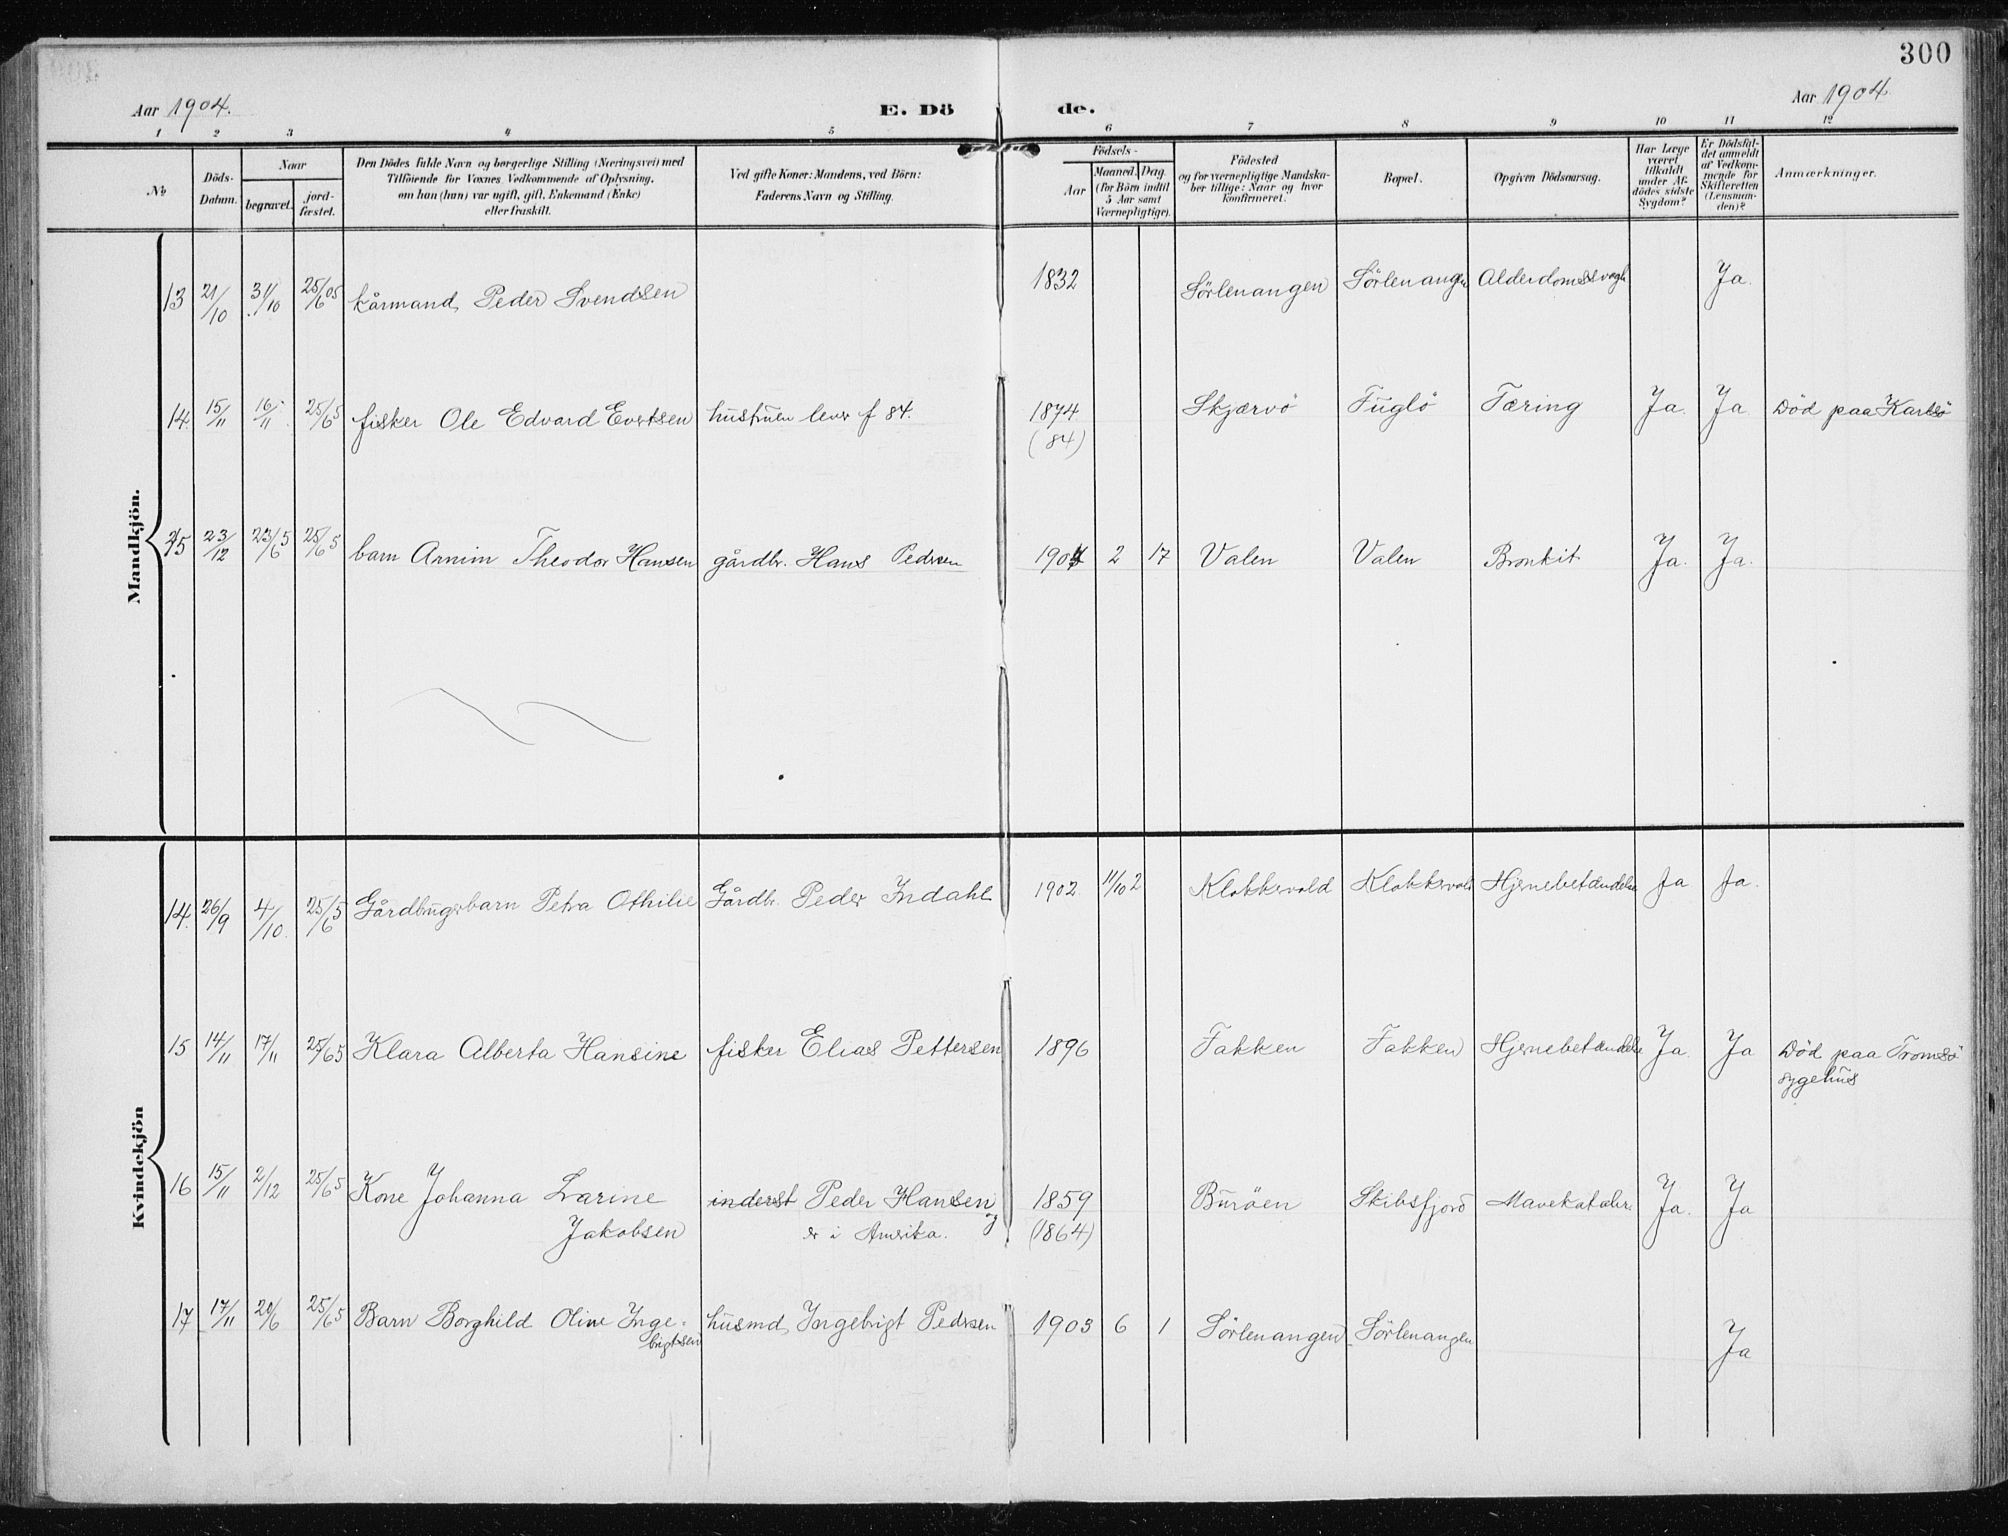 300
Aar 1904.
E. Dö de.
Aar 1904
1 2 3 4 5 6 7 8 9 10 11 12
No
Döds-Datum.
Naar
begravet.
jord-fæstet.
Den Dödes fulde Navn og borgerlige Stilling (Næringsvei) med
Tilföiende for Voxnes Vedkommende af Oplysning,
om han (hun) var ugift, gift, Enkemand (Enke)
eller fraskilt.
Ved gifte Koner: Mandens, ved Börn:
Faderens Navn og Stilling.
Födsels-
Aar
Maaned. Dag.
(for Börn indtil
5 Aar samt
Værnepligtige).
Födested
og for værnepligtige Mandska-
ber tillige: Naar og hvor
konfirmeret.
Bopæl.
Opgiven Dödsaarsag.
Har Læge
været
tilkaldt
under Af-
dödes sidste
Sygdom?
Er Dödsfal-
det anmeldt
af Vedkom-
mende for
Skifteretten
(Lensman-
den)?
Anmærkninger.
Mandkjön.
13 21/10 31/10 25/6 05 kårmand Peder Svendsen 1832 Sörlenangen Sörlenangen Alderdomssvagh Ja.
14. 15/11 16/11 25/6 5 fisker Ole Edvard Evertsen hustruen lever f 84. 1874 Skjærvö Fuglö Tæring Ja. Ja Död paa Karlsö
(84)
15 23/12 23/6 5 25/6 5 barn Arnim Theodor Hansen gårdbr. Hans Pedersen 1904 2 17 Valen Valen Bronkit Ja. Ja.
Kvindekjön
14. 26/9 4/10. 25/6 5 Gårdbrugerbarn Petra Othilie Gårdbr. Peder Indahl 1902 11/10 2 Klokkervold Klokkervold Hjernebetændelse Ja Ja.
15 14/11 17/11 25/6 5 Klara Alberta Hansine fisker Elias Pettersen 1896 Fakken Fakken Hjernebetændelse Ja. Ja Död paa Tromsö
sygehus
16 15/11 2/12 25/6 5 Kone Johanna Larine inderst Peder Hansen 1859 Buröen Skibsfjord Mavekatahr. Ja. Ja
Jakobsen er i Amerika. (1864)
17 17/11 20/6 25/6 5 Barn Borghild Oline Inge- husmd Ingebrigt Pedersen 1903 6 1 Sörlenangen Sörlenangen Ja
brigtsen